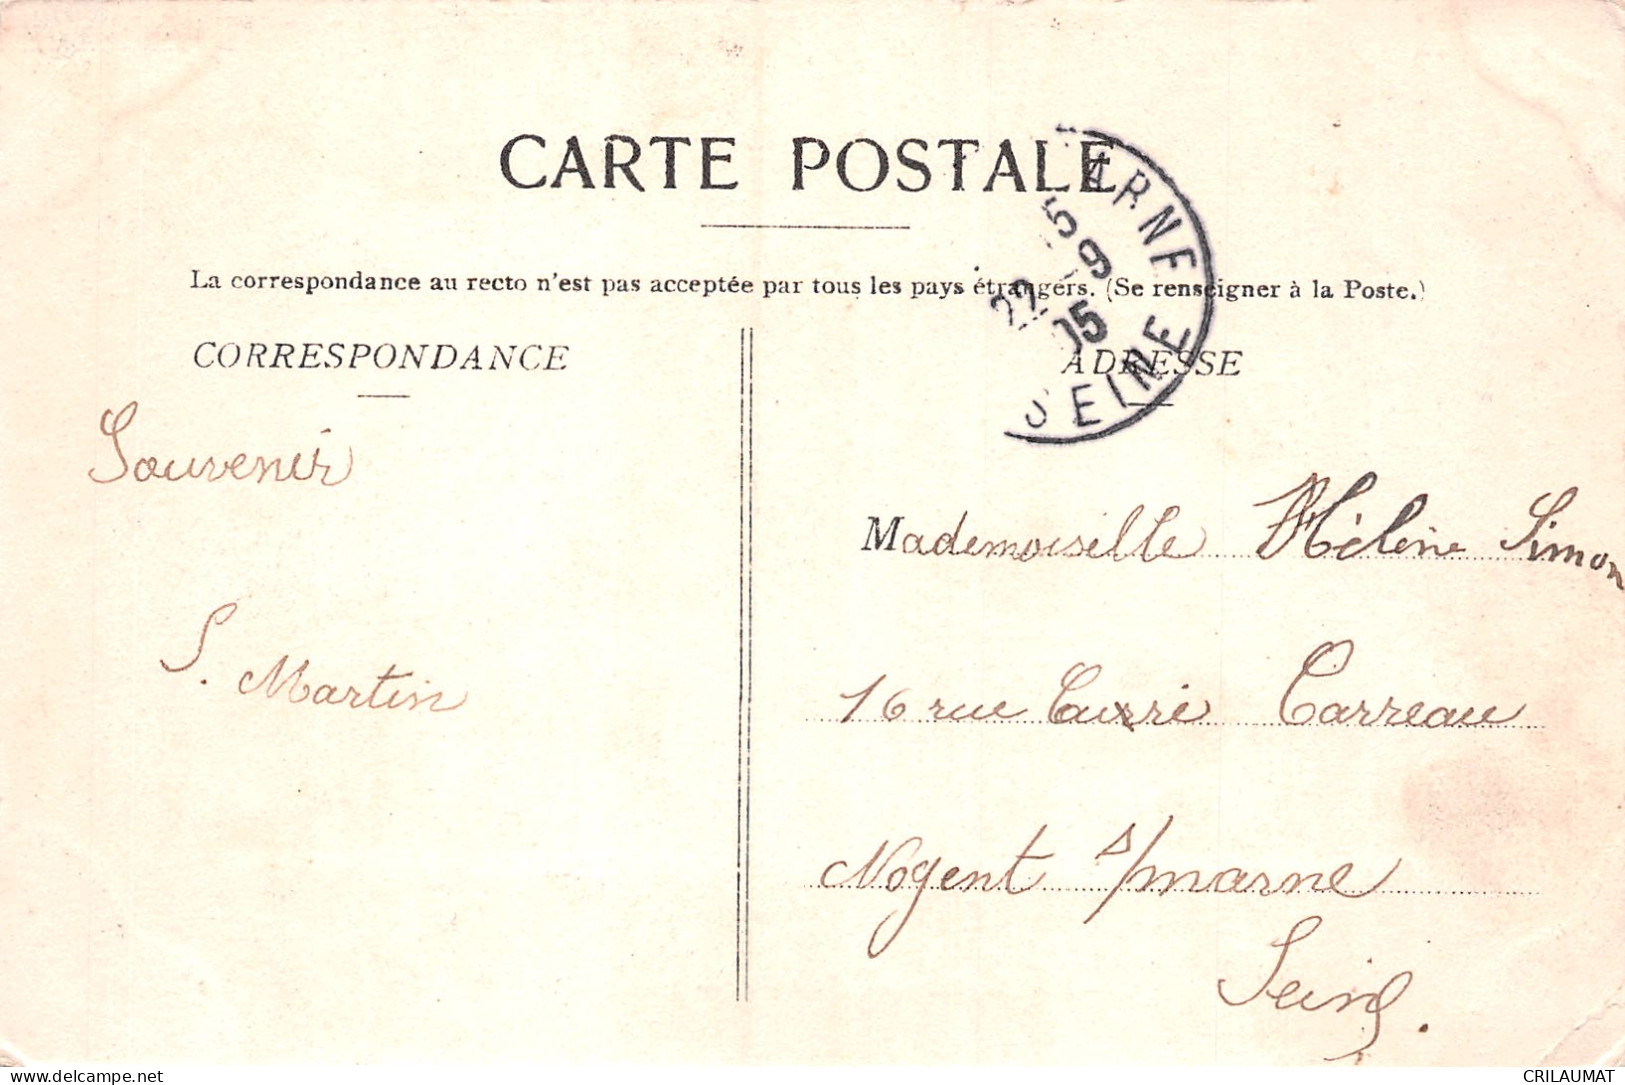 CARTE POSTALE
La correspondance au recto n'est pas acceptée par tous les pays étrangers. (Se renseigner à la Poste.)
CORRESPONDANCE
Souvenir
S. Martin
ARNE
22 - 9
05
SEINE
ADRESSE
Mademoiselle Hélène Simon
16 rue Carreau
Nogent s/marne
Seine.
CRILAUMAT